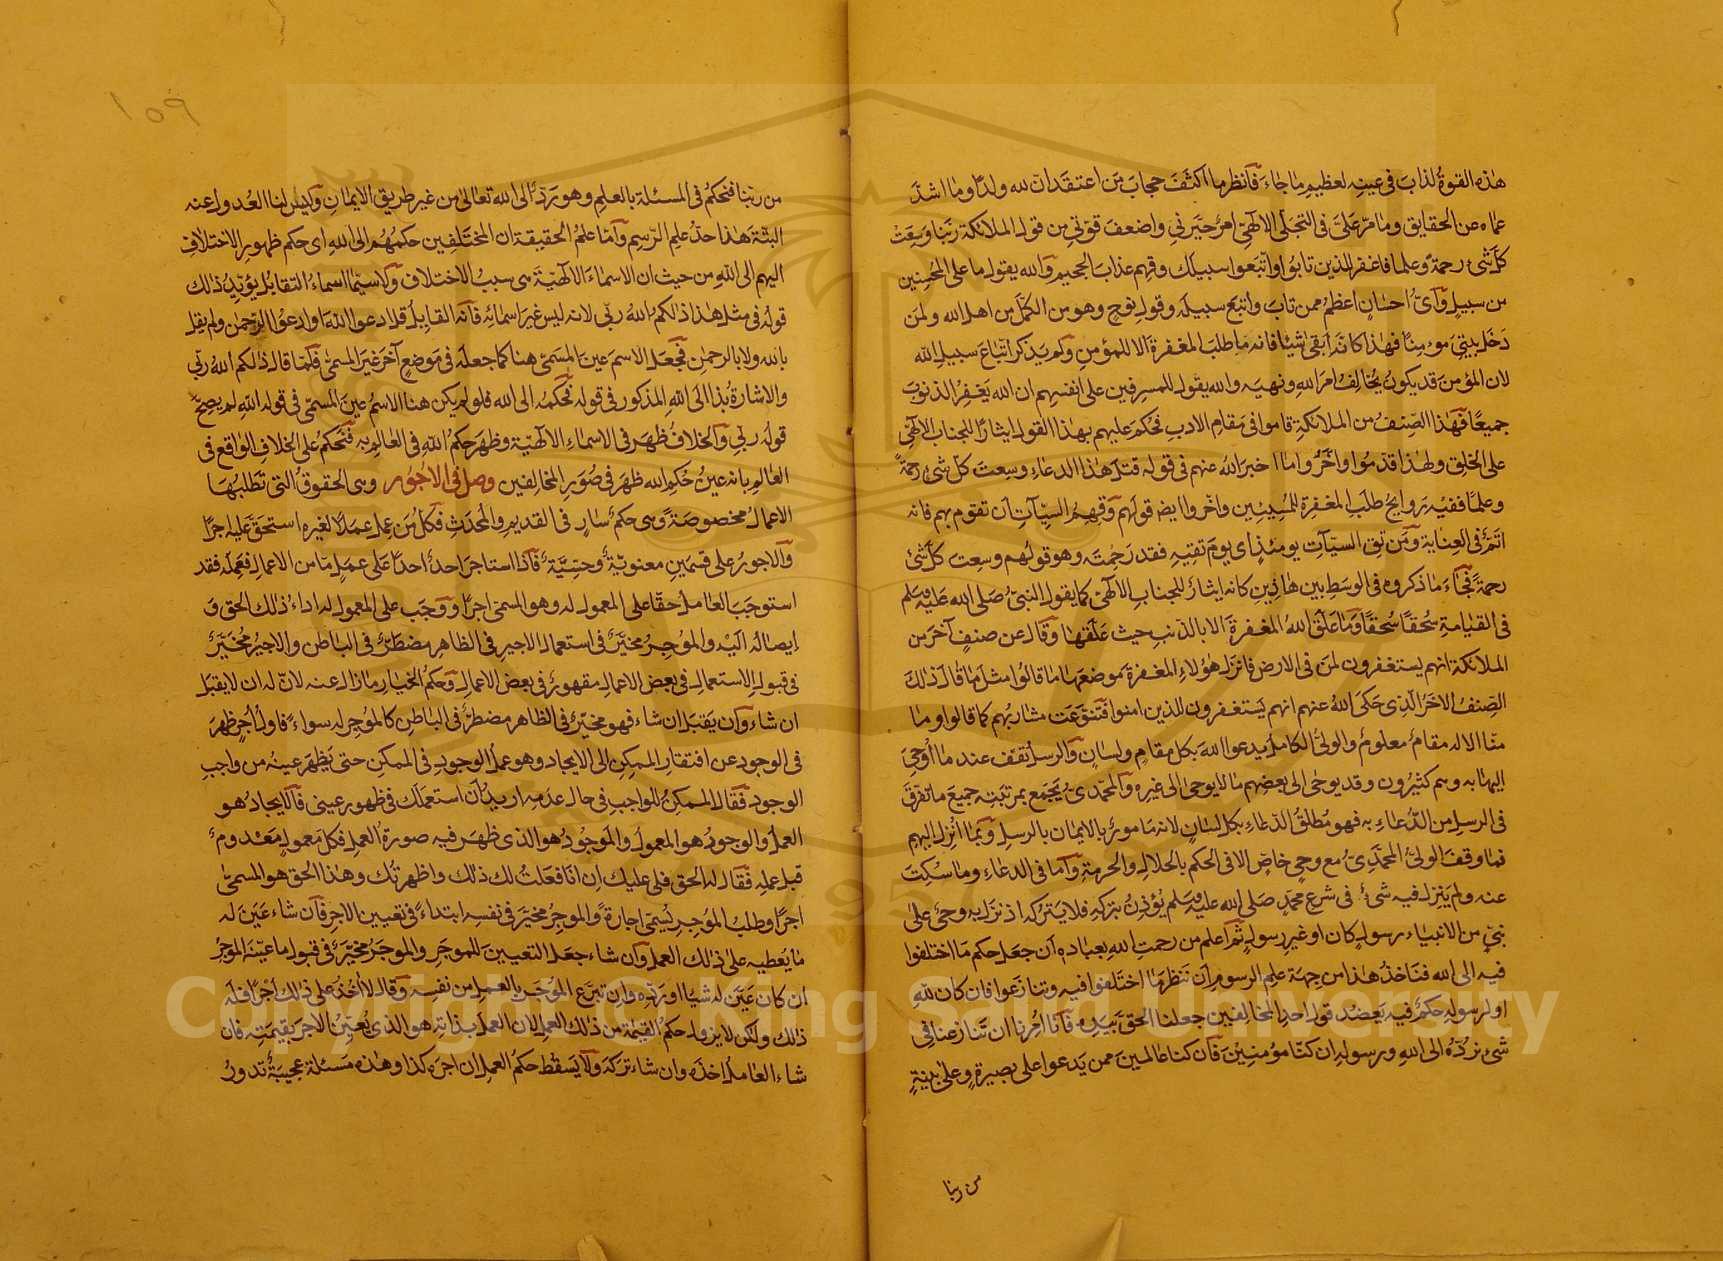 هذه القوة لذاب في عينه لعظيم ما جاء فانظر ما اكثف حجاب من اعتقد ان لله ولدا وما اشد
عماه عن الحقايق وما مر علي في التجلي الالهي امر حيرني واضعف قوتي من قول الملائكة ربنا وسعت
كل شئ رحمة وعلما فاغفر للذين تابوا واتبعوا سبيلك وقهم عذاب الجحيم والله يقول ما على المحسنين
من سبيل واي احسان اعظم ممن تاب واتبع سبيله وقول نوح وهو من الكمل من اهل الله ولمن
دخل بيتي مومنا فهذا كانه ابقى شيئا فانه ما طلب المغفرة الا للمؤمن ولم يذكر اتباع سبيل الله
لان المؤمن قد يكون يخالف امر الله ونهيه والله يقول للمسرفين على انفسهم ان الله يغفر الذنوب
جميعا فهذا الصنف من الملائكة قاموا في مقام الادب فحكم عليهم بهذا القول ايثارا للجناب الالهي
على الخلق ولهذا قدموا واخروا ما اخبر الله عنهم في قوله قبل هذا الدعاء وسعت كل شئ رحمة
وعلما ففيه روايح طلب المغفرة للمسيئين واخروا ايضه قولهم وقهم السيآت ان تقوم بهم فانه
اتم في العناية ومن تق السيآت يومئذ اي يوم تقيه فقد رحمته وهو قولهم وسعت كل شئ
رحمة فجاء ما ذكروه في الوسط بين هاذين كانه ايثار للجناب الالهي كما يقول النبي صلى الله عليه وسلم
في القيامة سحقا سحقا وما علق الله المغفرة الا بالذنب حيث علقها وقال عن صنف آخر من
الملائكة انهم يستغفرون لمن في الارض فانزل هؤلاء المغفرة موضعها ما قالوا مثل ما قال ذلك
الصنف الاخر الذي حكى الله عنهم انهم يستغفرون للذين امنوا فتنوعت مشاربهم كما قالوا وما
منا الا له مقام معلوم والولي الكامل يدعوا الله بكل مقام ولسان والرسل تقف عند ما اوحي
اليها به وهم كثيرون وقد يوحى الى بعضهم ما لا يوحى الى غيره والمحمدي يجمع بمرتبته جميع ما تفرق
في الرسل من الدعاء به فهو مطلق الدعاء بكل لسان لانه مامور بالايمان بالرسل وبما انزل اليهم
فما وقف الولي المحمدي مع وحي خاص الا في الحكم بالحلال والحرمة واما في الدعاء وما سكت
عنه ولم ينزل فيه شئ في شرع محمد صلى الله عليه وسلم يؤذن بتركه فلا يتركه اذ نزل به وحي على
نبي من الانبياء رسول كان او غير رسول ثم اعلم من رحمت الله بعباده ان جعل حكم ما اختلفوا
فيه الى الله فتاخذ هذا من جهة علم الرسوم ان ننظر ما اختلفوا فيه وتنازعوا فان كان لله
او لرسوله حكم فيه يعضد قول احد المخالفين جعلنا الحق بيده فانا امرنا ان تنازعنا في
شئ نرده الى الله ورسوله ان كنا مؤمنين فان كنا عالمين ممن يدعوا على بصيرة وعلى بينة
من ربنا
١٥٩
من ربنا فنحكم في المسئلة بالعلم وهو رد الى الله تعالى من غير طريق الايمان وليس لنا العدول عنه
البتة هذا حد علم الرسم واما علم الحقيقة ان المختلفين حكمهم الى الله اى حكم ظهور الاختلاف
اليهم الى الله من حيث ان الاسماء الالهية هي سبب الاختلاف ولا سيما اسماء التقابل يؤيد ذلك
قوله في مثل هذا ذلكم الله ربي لانه ليس غير اسمائه فانه القايل قل ادعوا الله او ادعوا الرحمن ولم يقل
بالله ولا بالرحمن فجعل الاسم عين المسمى هنا كما جعله في موضع آخر غير المسمى فلما قال ذلكم الله ربي
والاشارة بذا الى الله المذكور في قوله فحكمه الى الله فلو لم يكن هنا الاسم عين المسمى في قوله الله لم يصح
قوله ربي والخلاف ظهر في الاسماء الالهية وظهر حكم الله في العالم به فتحكم على الخلاف الواقع في
العالم بانه عين حكم الله ظهر في صور المخالفين وصل في الاجور وهي الحقوق التي تطلبها
الاعمال مخصوصة وهي حكم سار في القديم والمحدث فكل من عمل عملا لغيره استحق عليه اجرا
والاجور على قسمين معنوية وحسية فاذا استاجر احد احدا على عمل ما من الاعمال فعمله فقد
استوجب العامل حقا على المعمول له وهو المسمى اجرا ووجب على المعمول له اداء ذلك الحق و
ايصاله اليه والموجر مخير في استعمال الاجير في الظاهر مضطر في الباطن والاجير مخير
في قبول الاستعمال في بعض الاعمال مقهور في بعض الاعمال وحكم الخيار ما زال عنه لان له ان لا يقبل
ان شاء وان يقبل ان شاء فهو مخير في الظاهر مضطر في الباطن كالموجر له سواء فاول اجر ظهر
في الوجود عن افتقار الممكن الى الايجاد وهو عمل الوجود في الممكن حتى يظهر عينه من واجب
الوجود فقال الممكن للواجب في حال عدمه اريد ان استعملك في ظهور عيني فالايجاد هو
العمل والوجود هو المعمول والموجود هو الذى ظهر فيه صورة العمل فكل معمول معدوم
قبل عمله فقال له الحق فلي عليك ان انا فعلت لك ذلك واظهرتك وهذا الحق هو المسمى
اجرا وطلب الموجر يسمى اجارة والموجر مخير في نفسه ابتداء في تعيين الاجر فان شاء عين له
ما يعطيه على ذلك العمل وان شاء جعل التعيين للموجر والموجر مخير في قبول ما عينه الموجر
ان كان عين له شيئا او رده وان تبرع الموجر بالعمل من نفسه وقال لا آخذ على ذلك اجرا فله
ذلك ولكن لا يزول حكم القيمة من ذلك العمل لان العمل بذاته هو الذى يعين الاجر بقيمته فان
شاء العامل اخذه وان شاء تركه ولا يسقط حكم العمل ان اجره كذا وهذه مسئلة عجيبة تدور
Copyright © King Saud University
1957